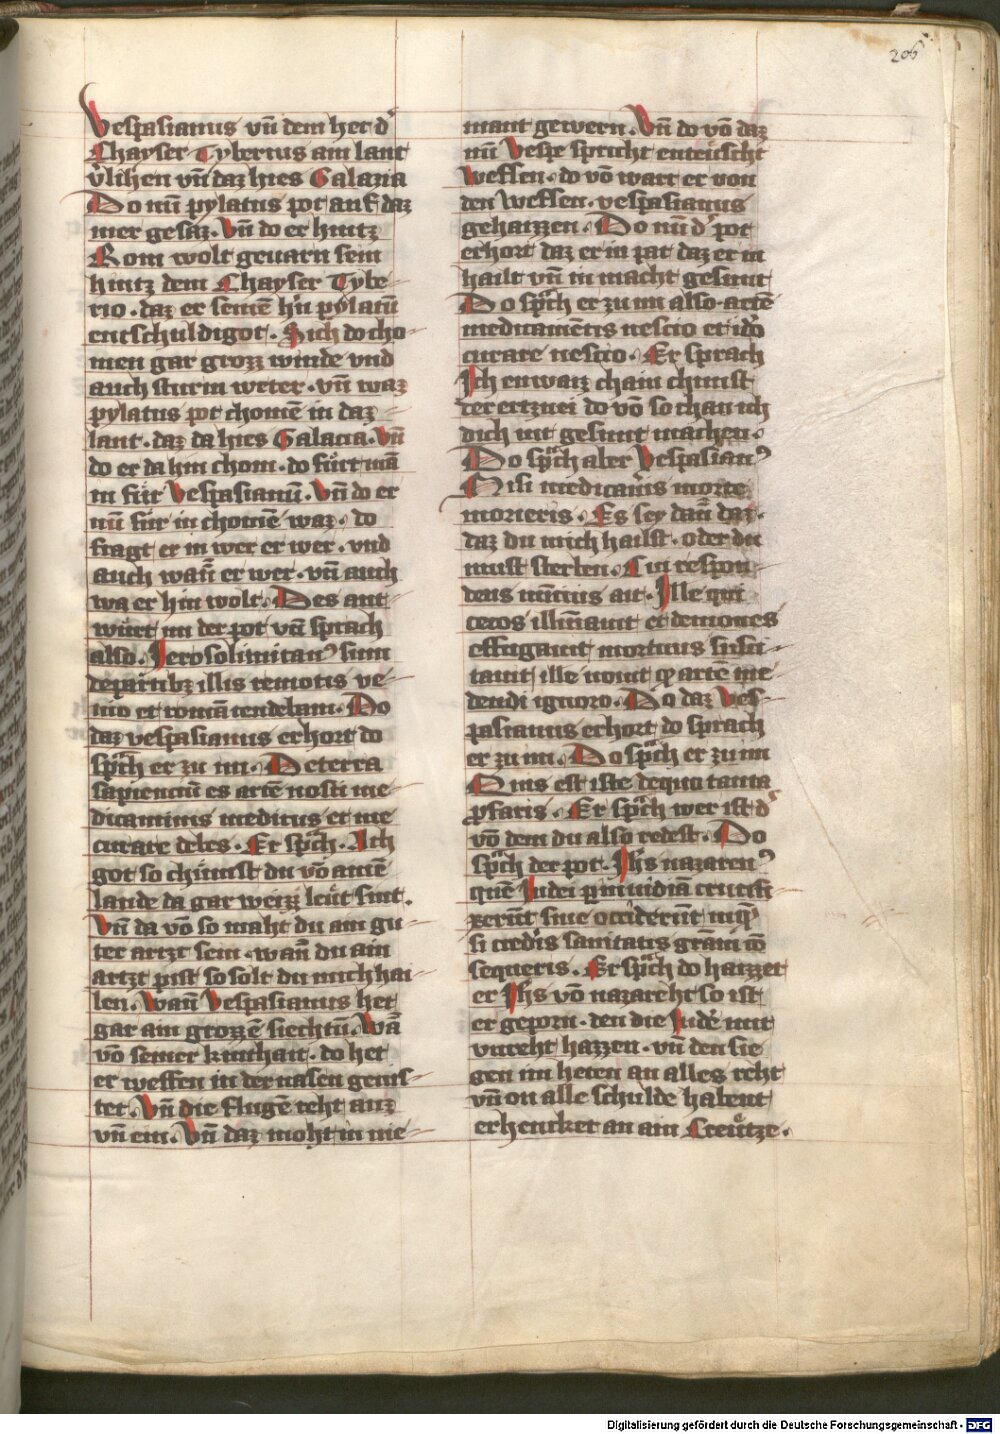 206
Vespasianus vn̄ dem het dˢ
Chayser Tyberius ain lant
v̓lihen vn̄ daz hies Galazia
Do nū pylatus pot auf daz
mer gesaz. Vn̄ do er hintz
Rom wolt geuarn sein
hintz dem Chayser Tybe-
rio. daz er seinē h̓n pylatū
entschuldigot. Sich do cho-
men gar grozz winde vnd
auch sturm weter. vn̄ waz
pylatus pot chomē in daz
lant. daz da hies Galacia. Vn̄
do er da hin chom. do fürt mā
in für Vespasianū. Vn̄ do er
nū für in chomē waz. do
fragt er in wer er wer. vnd
auch wan̄ er wer. vn̄ auch
wa er hin wolt. Des ant-
würt im der pot vn̄ sprach
also. Ierosolimitanꝰ sum
de partibꝫ illis remotis ve-
nio et romā tendebam. Do
daz vespasianus erhort do
sp̄ch er zu im. De terra
sapienciū es artē nosti me-
dicaminis medicus et me
curare debes. Er sp̄ch. Ich
got so chümst du vō ainē
lande da gar weizz leüt sint.
Vn̄ da vō so maht du ain gu-
ter artzt sein. wan̄ du ain
artzt pist so solt du mich hai-
len. Wan̄ Vespasianus het
gar ain grozzē siechtū. Wā
vō seiner kinthait. do het
er weffen in der nasen genis-
tet. Vn̄ die flugē reht auz
vn̄ ein. Vn̄ daz moht in nie-
mant gewern. Vn̄ do vō daz
nū Vespe spricht enteuscht
Weffen. do vō wart er von
den Weffen. vespasianus
gehaizzen. Do nū dˢ pot
erhort daz er in pat daz er in
hailt vn̄ in macht gesunt
Do sp̄ch er zu im also. artē
medicamētis nescio et idō
curare nescio. Er sprach
Ich enwaiz chain chunst
der ertznei do vō so chan ich
dich nit gesunt machen.
Do sp̄ch aber Vespasianꝰ
Nisi medicau̓is morte
morieris. Es sey dan̄ daz.
daz du mich hailst. oder du
must sterben. Cui respon-
dens nūcius ait. Ille qui
cecos illūinauit et demones
effugauit mortuus susci-
tauit ille nouit ꝙ artē me-
dendi ignoro. Do daz Ves-
pasianus erhort do sprach
er zu im. Do sp̄ch er zu im
Quis est iste de quo tanta
ꝓfaris. Er sp̄ch wer ist dˢ
vō dem du also redest. Do
sp̄ch der pot. Ih̄s nazarenꝰ
quē Iudei ꝑ inuidiā crucifi-
xerūt siue occiderūt in qͦ
si cred̓is sanitatis grām cō
sequeris. Er sp̄ch do haizzet
er Ih̄s vō nazareht so ist
er geporn. den die Iudē mit
vnreht hazzen. vn̄ den sie
gen im heten an alles reht
vn̄ on alle schulde habent
erhencket an ain Creütze.
Digitalisierung gefördert durch die Deutsche Forschungsgemeinschaft - DFG